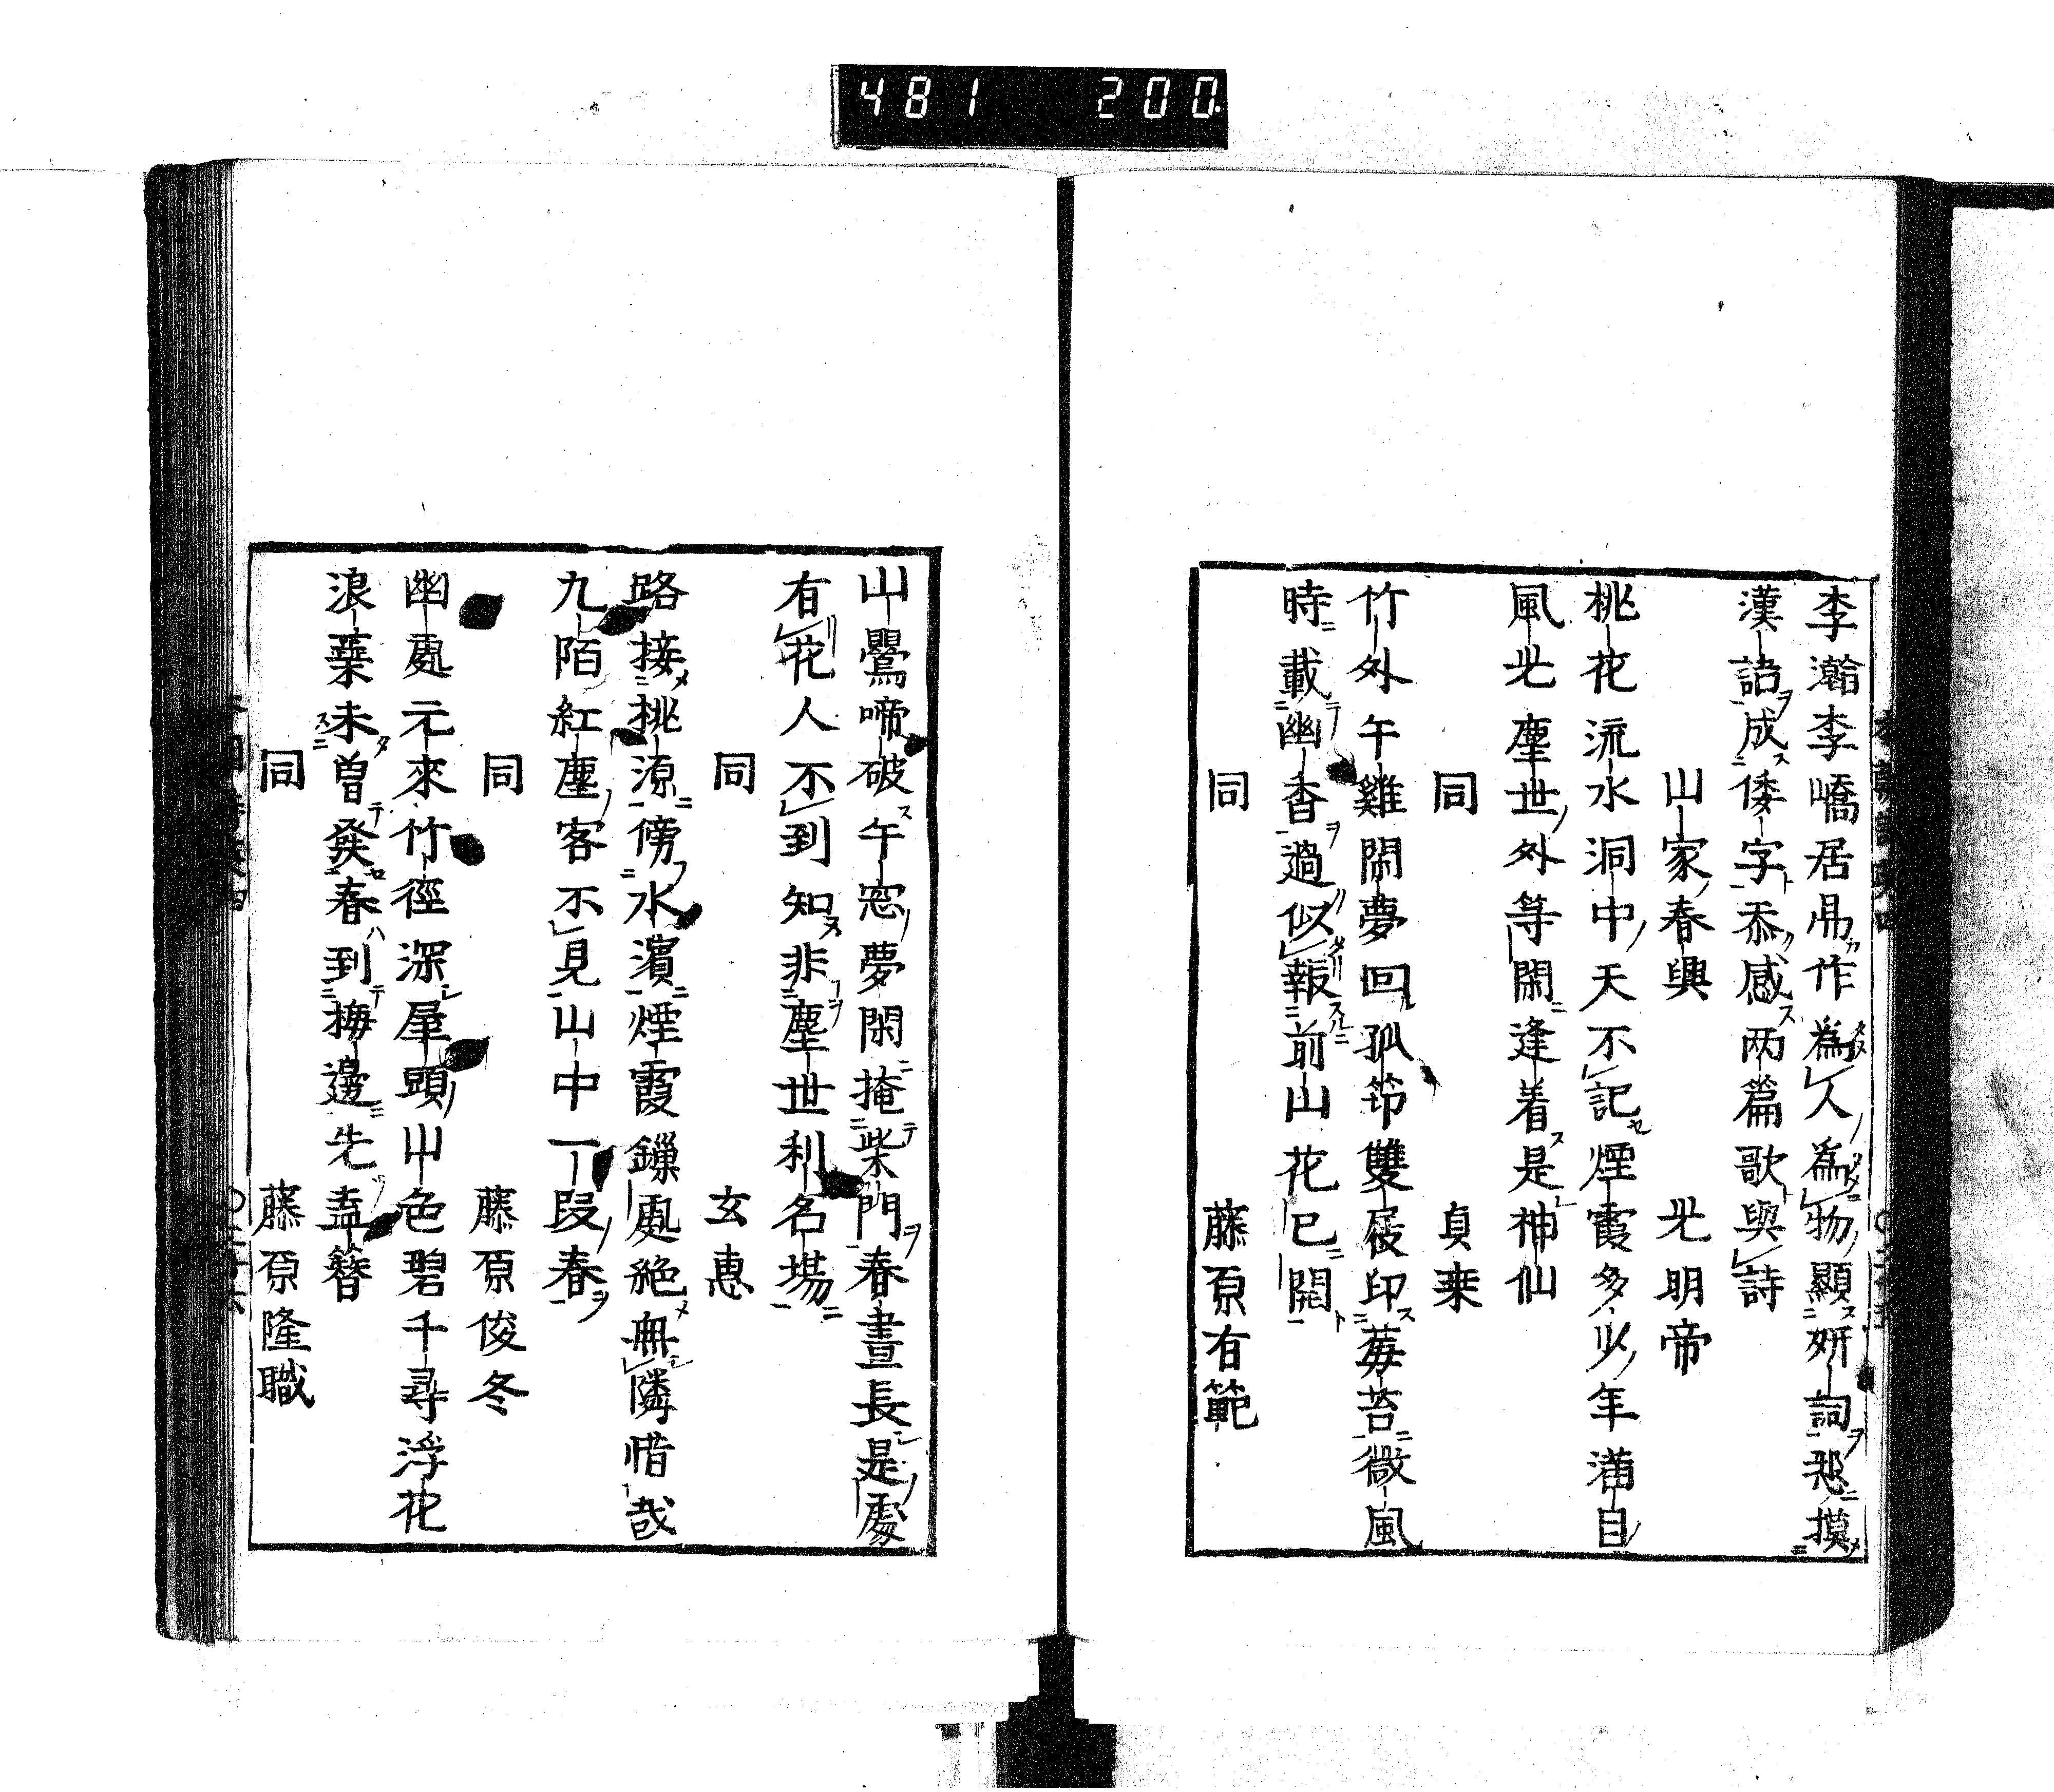 481 200
李瀚李嶠居鼎作為人為物顯妍詞恐摸
漢語成倭字忝感两篇歌與詩
山家春興 光明帝
桃花流水洞中天不記煙霞多少年満目
風光塵世外等閑逢着是神仙
同 貞乗
竹外午雞閙夢回孤笻雙屐印莓苔微風
時載幽香過似報前山花已開
同 藤原有範
山鸎啼破午窓夢閑掩柴門春晝長是處
有花人不到知非塵世利名場
同 玄恵
路接桃源傍水濱煙霞鏁處絶無隣惜哉
九陌紅塵客不見山中一段春
同 藤原俊冬
幽處元來竹徑深屋頭山色碧千尋浮花
浪蘂未曽発春到梅邊先盍簪
同 藤原隆職